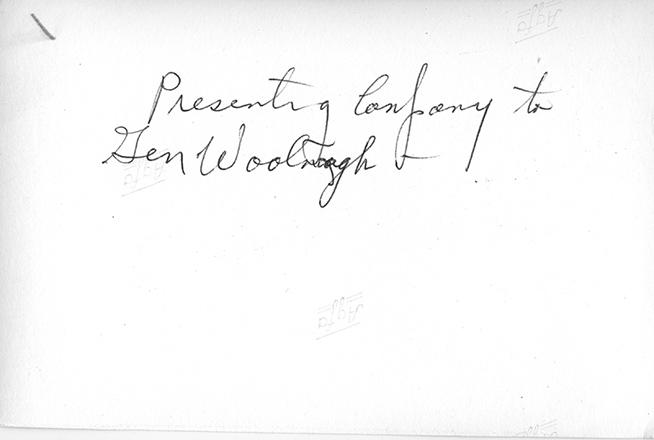 Agfa
Presenting Company to
Gen Woolnough
Agfa
Agfa
Agfa